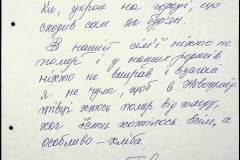 Км, укроп на городі, що
сходив сам як бур'ян.
В нашій сім'ї ніхто не
помер і у наших родичів
ніхто не вмирав і взагалі
я не чула, щоб в Жовтому
хтось помер від голоду,
хоч їсти хотілось всім, а
особливо - хліба.